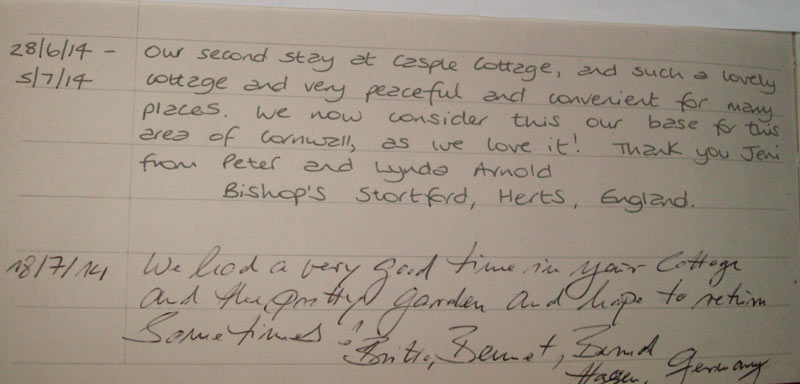 28/6/14 - Our second stay at Casple Cottage, and such a lovely
5/7/14 cottage and very peaceful and convenient for many
places. We now consider this our base for this
area of Cornwall, as we love it! Thank you Jeni
from Peter and Lynda Arnold
Bishop's Stortford, Herts, England.
18/7/14 We had a very good time in your Cottage
and the pretty garden and hope to return
Sometimes! Britta, Bennet, Bernd
Hagen, Germany